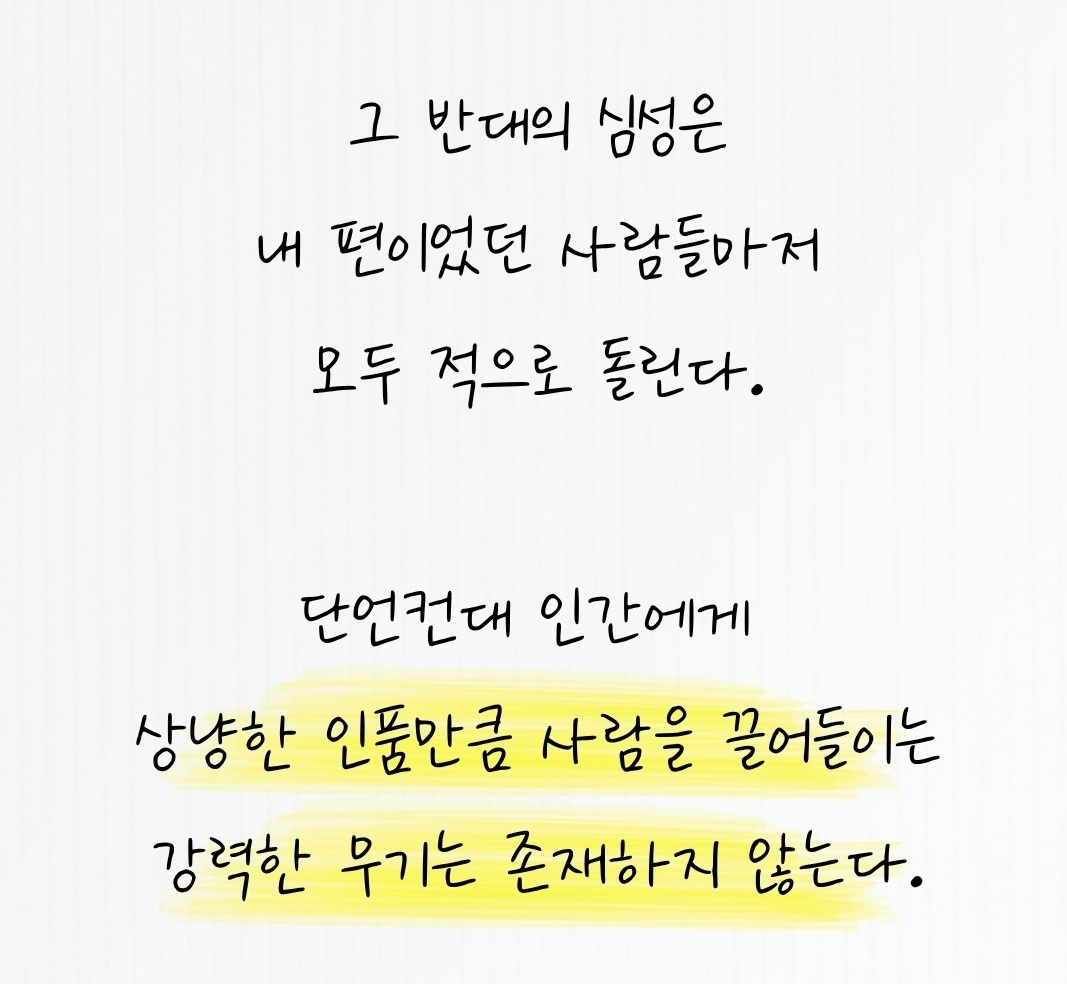 그 반대의 심성은
내 편이었던 사람들마저
모두 적으로 돌린다.
단언컨대 인간에게
상냥한 인품만큼 사람을 끌어들이는
강력한 무기는 존재하지 않는다.